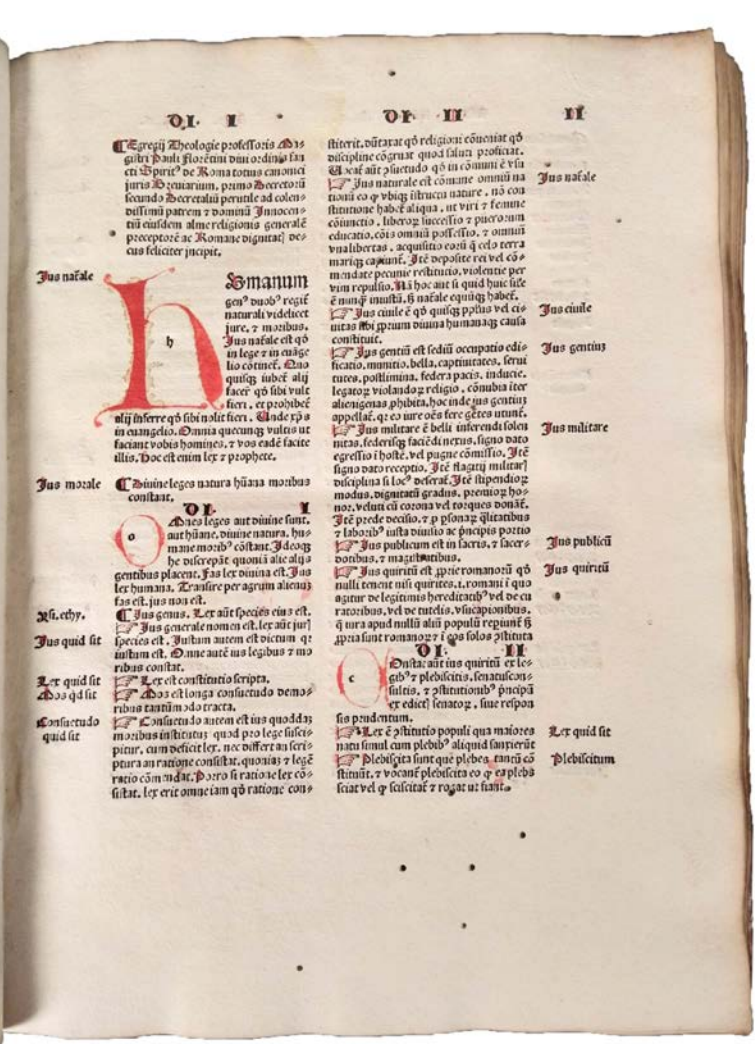 DI. I
DI. II
II
¶ Egregij Theologie professoris Ma⸗
gistri Pauli florētini diui ordinis san
cti Spiritꝰ de Roma totius canonici
juris Breuiarium, primo Decretorū
secundo Decretaliū perutile ad colen⸗
dissimū patrem ⁊ dominū Innocen⸗
tiū eiusdem alme religionis generalē
preceptorē ac Romane dignitatꝭ de⸗
cus feliciter jncipit.
Jus nat̃ale
h
Hvmanum
genꝰ duobꝰ regit̃
naturali videlicet
jure. ⁊ moribus.
Jus nat̃ale est qđ
in lege ⁊ in euāge
lio cōtinet̃. Quo
quisqꝫ iubet̃ alij
facer̃ qđ sibi vult
fieri. et prohibet̃
alij inferre qđ sibi nolit fieri. Unde xp̄s
in euangelio. Omnia quecunqꝫ vultis ut
faciant vobis homines. ⁊ vos eadē facite
illis. hoc est enim lex ⁊ prophete.
Jus morale
¶ Diuine leges natura hūana moribus
constant.
DI. I
o
Mnes leges aut diuine sunt.
aut hūane. diuine natura. hu⸗
mane moribꝰ cōstant. Jdeoqꝫ
he discrepāt quoniā alie alijs
gentibus placent. Fas lex diuina est. Jus
lex humana. Transire per agrum alienuꝫ
fas est. jus non est.
Ysi. ethy.
¶ Jus genus. Lex aūt species eius est.
Jus quid sit
☞ Jus generale nomen est. lex aūt jurꝭ
species est. Justum autem est dictum qꝛ
iustum est. Omne autē ius legibus ⁊ mo
ribus constat.
Lex quid sit
☞ Lex est constitutio scripta.
Mos qđ sit
☞ Mos est longa consuetudo demo⸗
ribus tantūmodo tracta.
Consuetudo
quid sit
☞ Consuetudo autem est ius quoddaꝫ
moribus institutuꝫ quod pro lege susci⸗
pitur. cum deficit lex. nec differt an scri⸗
ptura an ratione consistat. quoniaꝫ ⁊ legē
ratio cōmendat. Porro si ratione lex cō⸗
sistat. lex erit omne iam qđ ratione con⸗
stiterit. dūtaxat qđ religioni cōueniat qđ
discipline cōgruat quod saluti proficiat.
Uocat̃ aūt ꝯsuetudo qđ in cōmuni ē vsu
Jus nat̃ale
☞ Jus naturale est cōmune omniū na
tionū eo ꝙ vbiqꝫ ĩstructu nature. nō con
stitutione habet̃ aliqua. ut viri ⁊ femine
cōiunctio. liberoꝝ successio ⁊ pueroꝛum
educatio. cōis omniū possessio. ⁊ omniū
vna libertas. acquisitio eorū ꝙ celo terra
mariqꝫ capiunt̃. Jtē deposite rei vel cō⸗
mendate pecunie restitucio. violentie per
vim repulsio. Nā hoc aut si quid huic sil̃e
ē nunꝙ̃ iniustū. sꝫ natale equūqꝫ habet̃.
Jus ciuile
☞ Jus ciuile ē qđ quisqꝫ pp̄ls vel ci⸗
uitas sibi ꝓprium diuina humanaqꝫ causa
constituit.
Jus gentiuꝫ
☞ Jus gentiū est sediū occupatio edi⸗
ficatio. munitio. bella. captiuitates. serui
tutes. postlimina. federa pacis. inducie.
legatoꝝ violandoꝝ religio. cōnubia iter
alienigenas ꝓhibita. hoc inde jus gentiuꝫ
appellat̃. qꝛ eo iure oēs fere gētes utunt̃.
Jus militare
☞ Jus militare ē belli inferendi solen
nitas. federisqꝫ faciēdi nexus. signo dato
egressio ĩ hostē. vel pugne cōmissio. Jtē
signo dato receptio. Jtē flagitij militarꝭ
disciplina si locꝰ deserat̃. Jtē stipendioꝝ
modus. dignitatū gradus. premioꝝ ho⸗
nor. veluti cū corona vel torques donāt̃.
Jtē prede decisio. ⁊ ꝓ ꝑsonaꝝ q̃litatibus
⁊ laboribꝰ iusta diuisio ac pͥncipis portio
Jus publicū
☞ Jus publicum est in sacris. ⁊ sacer⸗
dotibus. ⁊ magistratibus.
Jus quiritū
☞ Jus quiritū est ꝓprie romanorū qđ
nulli tenent nisi quirites. ĩ. romani ĩ quo
agitur de legitimis hereditatibꝰ vel de cu
ratoribus. vel de tutelis. vsucapionibus.
q̃ iura apud nullū aliū populū repiunt̃ sꝫ
ꝓpria sunt romanoꝝ ⁊ ĩ eos solos ꝯstituta
DI. II
c
Onstat aūt ius quiritū ex le⸗
gibꝰ ⁊ plebiscitis. senatuscon⸗
sultis. ⁊ ꝯstitutionibꝰ pͥncipū
ex edictꝭ senatoꝝ. siue respon
sis prudentum.
Lex quid sit
☞ Lex ē ꝯstitutio populi qua maiores
natu simul cum plebibꝰ aliquid sanxerūt
Plebiscitum
☞ Plebiscita sunt que plebes tantū cō
stituūt. ⁊ vocant̃ plebiscita eo ꝙ ea plebs
sciat vel ꝙ sciscitat̃ ⁊ rogat ut fiant.